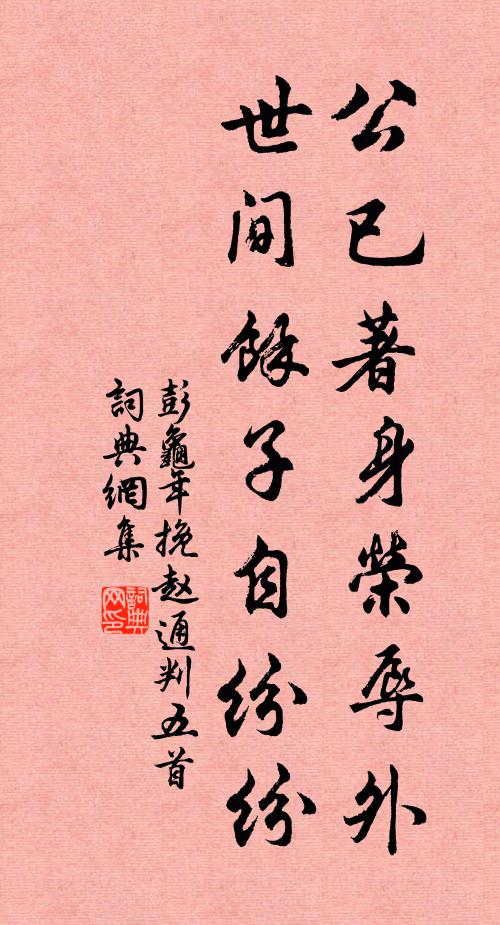 公已著身榮辱外
世间餘子自纷纷
彭龜年挽赵通判五首
詞典網集
詞典
网印